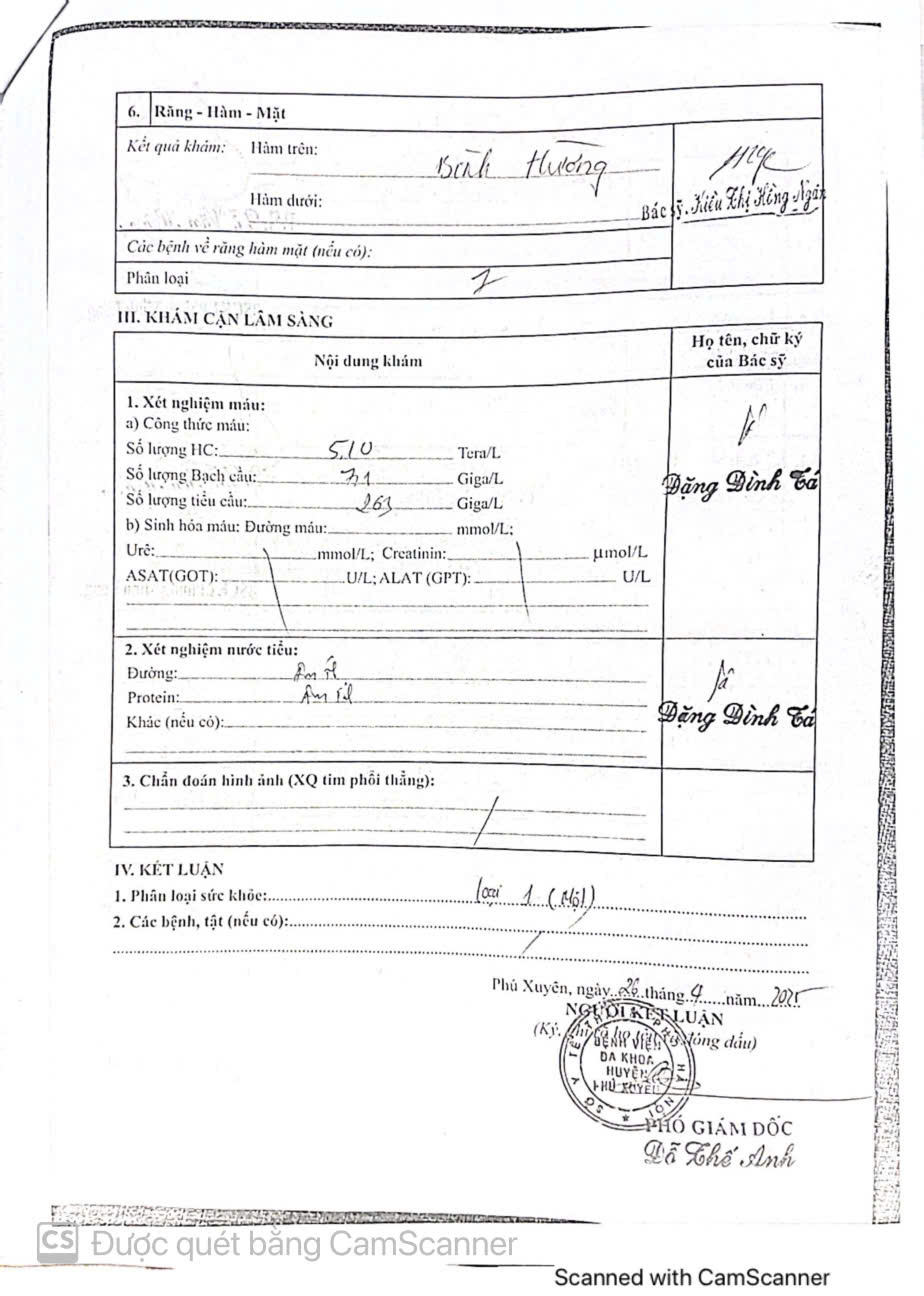 6. Răng - Hàm - Mặt
Kết quả khám: Hàm trên:
Bình thường
Hàm dưới:
Bác sỹ. Kiều Thị Hồng Ngân
Các bệnh về răng hàm mặt (nếu có):
Phân loại 1
III. KHÁM CẬN LÂM SÀNG
Nội dung khám
Họ tên, chữ ký của Bác sỹ
1. Xét nghiệm máu:
a) Công thức máu:
Số lượng HC: 5,10 Tera/L
Số lượng Bạch cầu: 7,1 Giga/L
Số lượng tiểu cầu: 263 Giga/L
Đặng Đình Tá
b) Sinh hóa máu: Đường máu: mmol/L;
Urê: mmol/L; Creatinin: µmol/L
ASAT(GOT): U/L; ALAT (GPT): U/L
2. Xét nghiệm nước tiểu:
Đường: Âm tí
Protein: Âm tí
Khác (nếu có):
Đặng Đình Tá
3. Chẩn đoán hình ảnh (XQ tim phổi thẳng):
IV. KẾT LUẬN
1. Phân loại sức khỏe: loại 1 (Một)
2. Các bệnh, tật (nếu có):
Phú Xuyên, ngày 26 tháng 4 năm 2025
NGƯỜI KẾT LUẬN
(Ký, ghi rõ họ tên đóng dấu)
SỞ Y TẾ THÀNH PHỐ HÀ NỘI
BỆNH VIỆN
ĐA KHOA
HUYỆN
PHÚ XUYÊN
PHÓ GIÁM ĐỐC
Đỗ Thế Anh
CS Được quét bằng CamScanner
Scanned with CamScanner